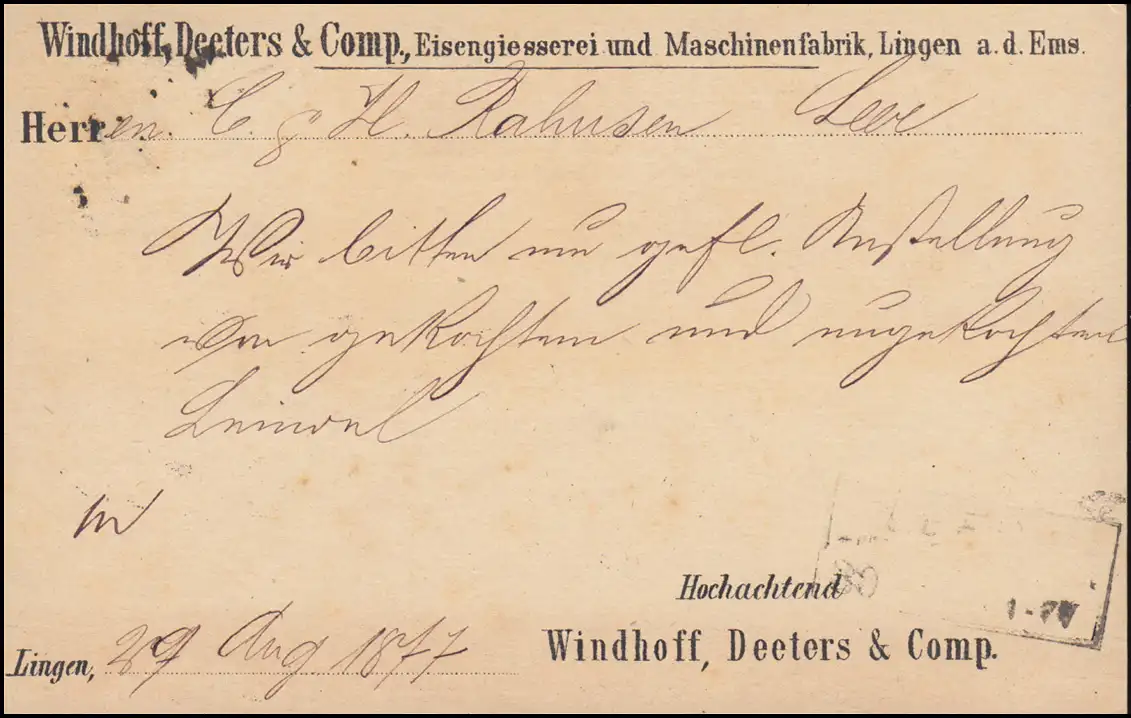 Windhoff, Deeters & Comp., Eisengiesserei und Maschinenfabrik, Lingen a. d. Ems.
Herren. C & H. Rahusen Leer
Wir bitten um gefl. Anstellung
von gekochtem und ungekochtem
Leinoel
Hochachtend
1-7N
Lingen, 29 Aug 1877
Windhoff, Deeters & Comp.